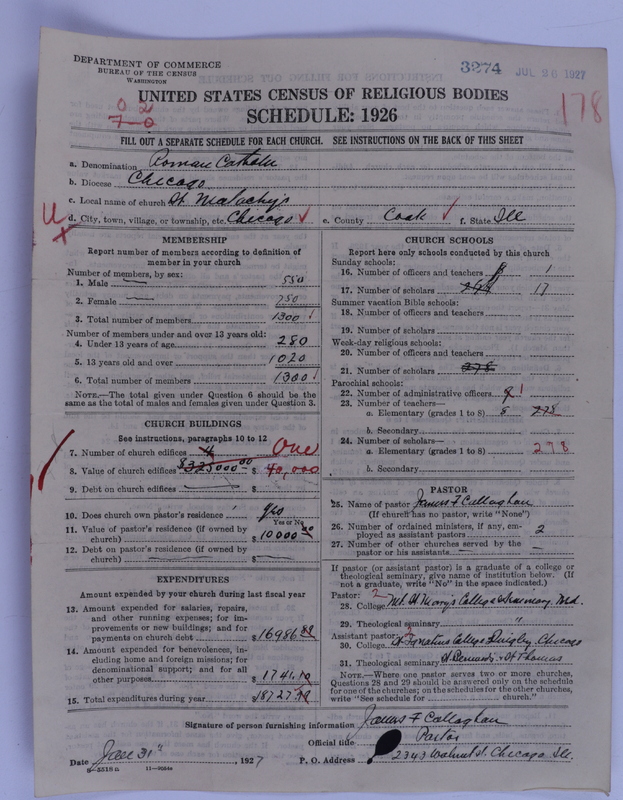 DEPARTMENT OF COMMERCE
BUREAU OF THE CENSUS
WASHINGTON
3274 JUL 26 1927
178
UNITED STATES CENSUS OF RELIGIOUS BODIES
0 2
7-0
SCHEDULE: 1926
FILL OUT A SEPARATE SCHEDULE FOR EACH CHURCH. SEE INSTRUCTIONS ON THE BACK OF THIS SHEET
a. Denomination Roman Catholic
b. Diocese Chicago
c. Local name of church St. Malachy's
d. City, town, village, or township, etc. Chicago e. County Cook f. State Ill
MEMBERSHIP
Report number of members according to definition of
member in your church
Number of members, by sex:
1. Male 550
2. Female 750
3. Total number of members 1300
Number of members under and over 13 years old:
4. Under 13 years of age 280
5. 13 years old and over 1020
6. Total number of members 1300
NOTE.—The total given under Question 6 should be
the same as the total of males and females given under Question 3.
CHURCH BUILDINGS
See instructions, paragraphs 10 to 12
7. Number of church edifices 4 One
8. Value of church edifices $325000.00 $ 40,000
9. Debt on church edifices $
10. Does church own pastor's residence? Yes
Yes or No
11. Value of pastor's residence (if owned by
church) $ 10000 00
12. Debt on pastor's residence (if owned by
church) $
EXPENDITURES
Amount expended by your church during last fiscal year
13. Amount expended for salaries, repairs,
and other running expenses; for im-
provements or new buildings; and for
payments on church debt $ 16986
14. Amount expended for benevolences, in-
cluding home and foreign missions; for
denominational support; and for all
other purposes $ 1741.10
15. Total expenditures during year $ 18727
CHURCH SCHOOLS
Report here only schools conducted by this church
Sunday schools:
16. Number of officers and teachers 1
17. Number of scholars 17
Summer vacation Bible schools:
18. Number of officers and teachers
19. Number of scholars
Week-day religious schools:
20. Number of officers and teachers
21. Number of scholars 298
Parochial schools:
22. Number of administrative officers 1
23. Number of teachers—
a. Elementary (grades 1 to 8) 8
b. Secondary
24. Number of scholars—
a. Elementary (grades 1 to 8) 298
b. Secondary
PASTOR
25. Name of pastor James F Callaghan
(If church has no pastor, write "None")
26. Number of ordained ministers, if any, em-
ployed as assistant pastors 2
27. Number of other churches served by the
pastor or his assistants
If pastor (or assistant pastor) is a graduate of a college or
theological seminary, give name of institution below. (If
not a graduate, write "No" in the space indicated.)
Pastor: 2
28. College Mt. St Mary's College & Seminary, Md.
29. Theological seminary "
Assistant pastor:
30. College St Ignatius College Quigley, Chicago
31. Theological seminary St Bernards & St Thomas
NOTE.—Where one pastor serves two or more churches,
Questions 28 and 29 should be answered only on the schedule
for one of the churches; on the schedules for the other churches,
write "See schedule for church."
Signature of person furnishing information James F Callaghan
Official title Pastor
Date Jan 31st, 1927 P. O. Address 2343 Walnut St. Chicago Ill.
8-5518 a 11-9254a